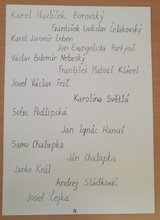 Karel Havlíček Borovský
František Ladislav Čelakovský
Karel Jaromír Erben
Jan Evangelista Purkyně
Václav Bolemír Nebeský
František Matouš Klácel
Josef Václav Frič
Karolina Světlá
Sofie Podlipská
Jan Ignác Hanuš
Samo Chalupka
Ján Chalupka
Janko Kráľ
Andrej Sládkovič
Josef Čejka